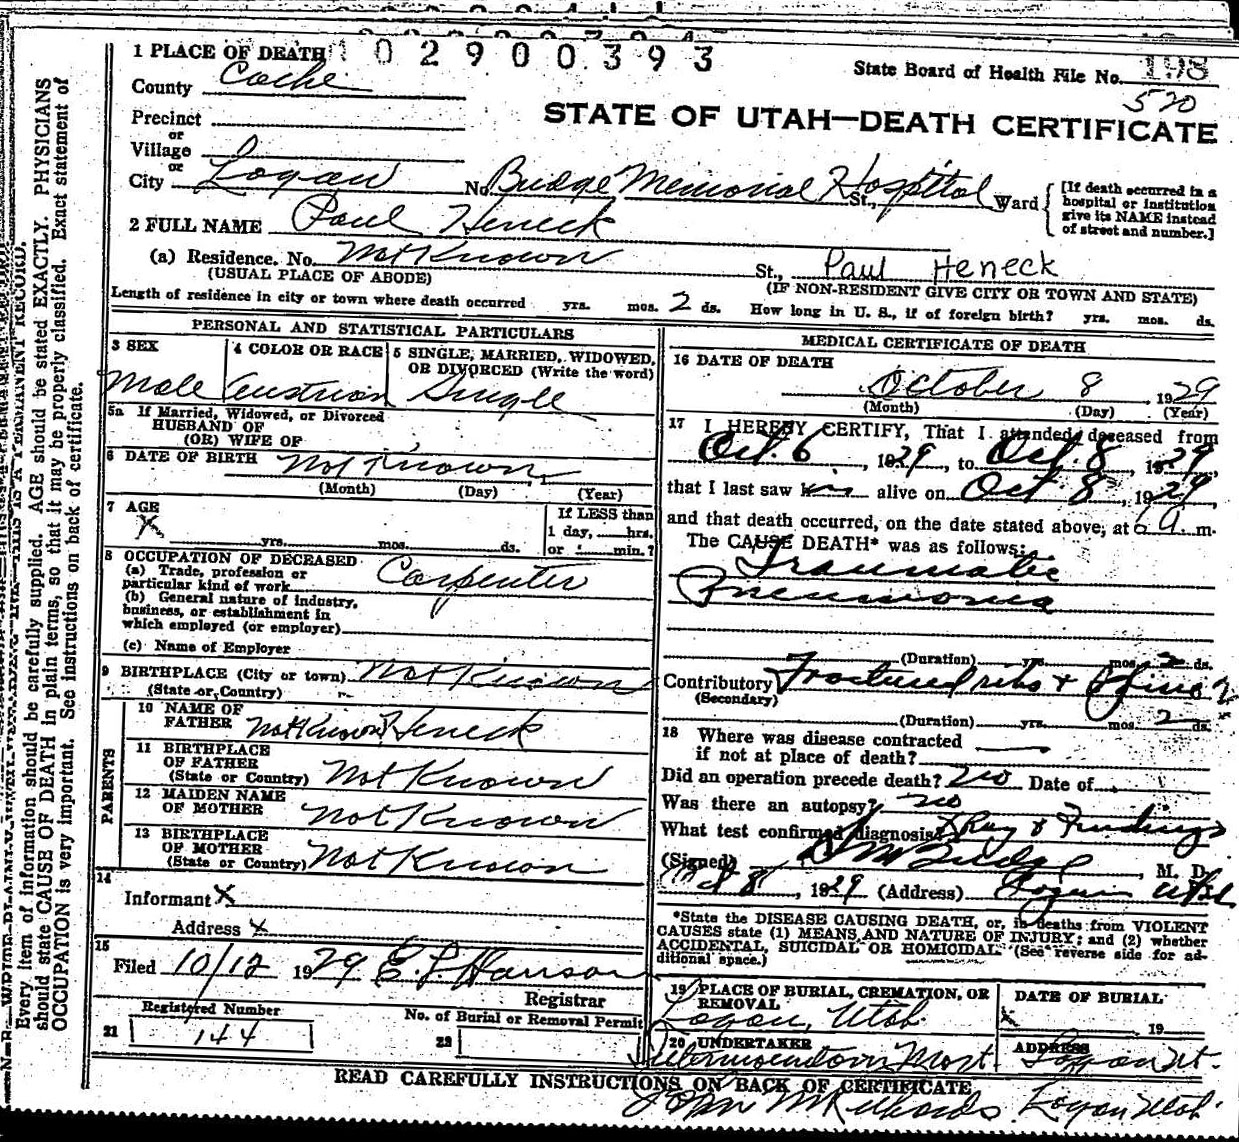 1 PLACE OF DEATH 102900393
State Board of Health File No. 198
520
County Cache
STATE OF UTAH—DEATH CERTIFICATE
Precinct
or
Village
or
City Logan No. Budge Memorial Hospital St., Ward
[If death occurred in a hospital or institution give its NAME instead of street and number.]
2 FULL NAME Paul Heneck
(a) Residence. No. Not Known St., Paul Heneck
(USUAL PLACE OF ABODE) (IF NON-RESIDENT GIVE CITY OR TOWN AND STATE)
Length of residence in city or town where death occurred yrs. mos. 2 ds. How long in U. S., if of foreign birth? yrs. mos. ds.
PERSONAL AND STATISTICAL PARTICULARS
3 SEX 4 COLOR OR RACE 5 SINGLE, MARRIED, WIDOWED, OR DIVORCED (Write the word)
Male Austrian Single
5a If Married, Widowed, or Divorced
HUSBAND OF
(OR) WIFE OF
6 DATE OF BIRTH Not Known
(Month) (Day) (Year)
7 AGE If LESS than
X 1 day, hrs.
yrs. mos. ds. or min.?
8 OCCUPATION OF DECEASED
(a) Trade, profession or
particular kind of work Carpenter
(b) General nature of industry,
business, or establishment in
which employed (or employer)
(c) Name of Employer
9 BIRTHPLACE (City or town) Not Known
(State or Country)
PARENTS
10 NAME OF
FATHER Not Known Heneck
11 BIRTHPLACE
OF FATHER
(State or Country) Not Known
12 MAIDEN NAME
OF MOTHER Not Known
13 BIRTHPLACE
OF MOTHER
(State or Country) Not Known
14
Informant X
Address X
15
Filed 10/12 1929 E. L. Hanson
Registrar
Registered Number No. of Burial or Removal Permit
21 144 22
MEDICAL CERTIFICATE OF DEATH
16 DATE OF DEATH
October 8, 1929
(Month) (Day) (Year)
17 I HEREBY CERTIFY, That I attended deceased from
Oct. 6, 1929, to Oct. 8, 1929,
that I last saw him alive on Oct 8, 1929
and that death occurred, on the date stated above, at 6 a. m.
The CAUSE DEATH* was as follows:
Traumatic
Pneumonia
(Duration) yrs. mos. 2 ds.
Contributory Fractured ribs + Spine
(Secondary)
(Duration) yrs. mos. 2 ds.
18 Where was disease contracted
if not at place of death?
Did an operation precede death? no Date of
Was there an autopsy? no
What test confirmed diagnosis? XRay & Findings
(Signed) S M Budge, M. D.
Oct 8, 1929 (Address) Logan Utah
*State the DISEASE CAUSING DEATH, or, in deaths from VIOLENT
CAUSES state (1) MEANS AND NATURE OF INJURY; and (2) whether
ACCIDENTAL, SUICIDAL OR HOMICIDAL. (See reverse side for ad-
ditional space.)
19 PLACE OF BURIAL, CREMATION, OR REMOVAL DATE OF BURIAL
Logan, Utah X 19
20 UNDERTAKER ADDRESS
Mort. Logan Ut.
READ CAREFULLY INSTRUCTIONS ON BACK OF CERTIFICATE
John Logan Utah
Every item of information should be carefully supplied. AGE should be stated EXACTLY. PHYSICIANS
should state CAUSE OF DEATH in plain terms, so that it may be properly classified. Exact statement of
OCCUPATION is very important. See instructions on back of certificate.